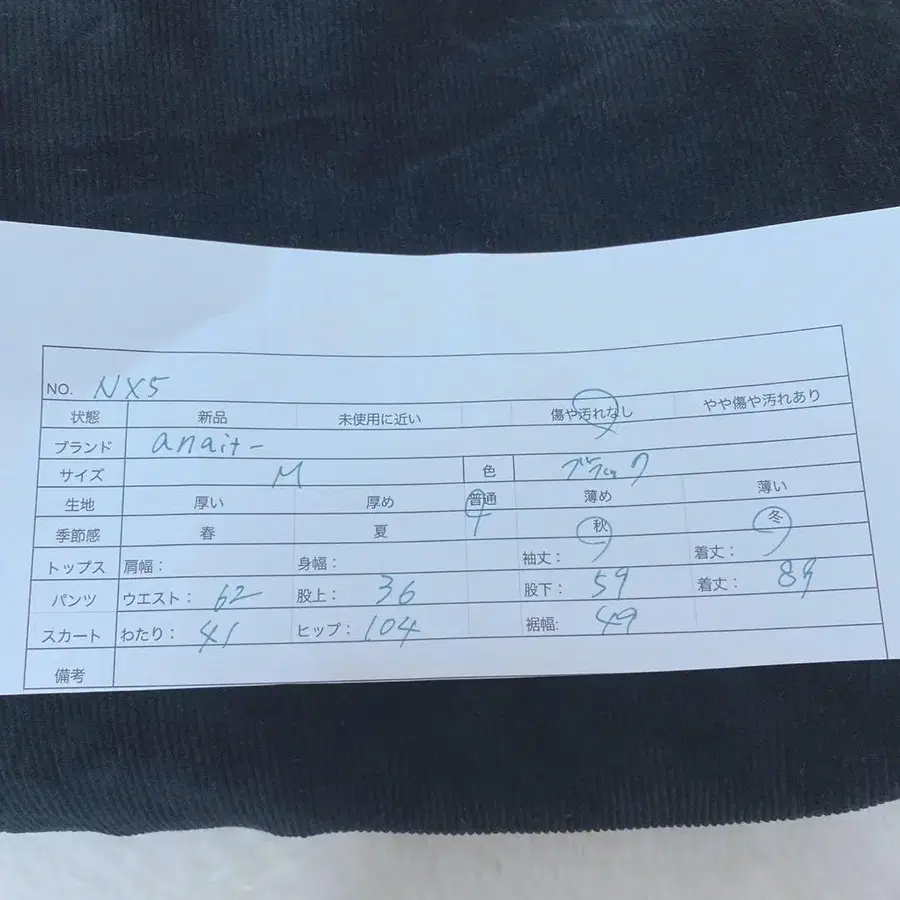 NO. NX5
状態 新品 未使用に近い 傷や汚れなし やや傷や汚れあり
ブランド anait-
サイズ M 色 ブラック
生地 厚い 厚め 普通 薄め 薄い
季節感 春 夏 秋 冬
トップス 肩幅: 身幅: 袖丈: 着丈:
パンツ ウエスト: 62 股上: 36 股下: 59 着丈: 89
スカート わたり: 41 ヒップ: 104 裾幅: 49
備考